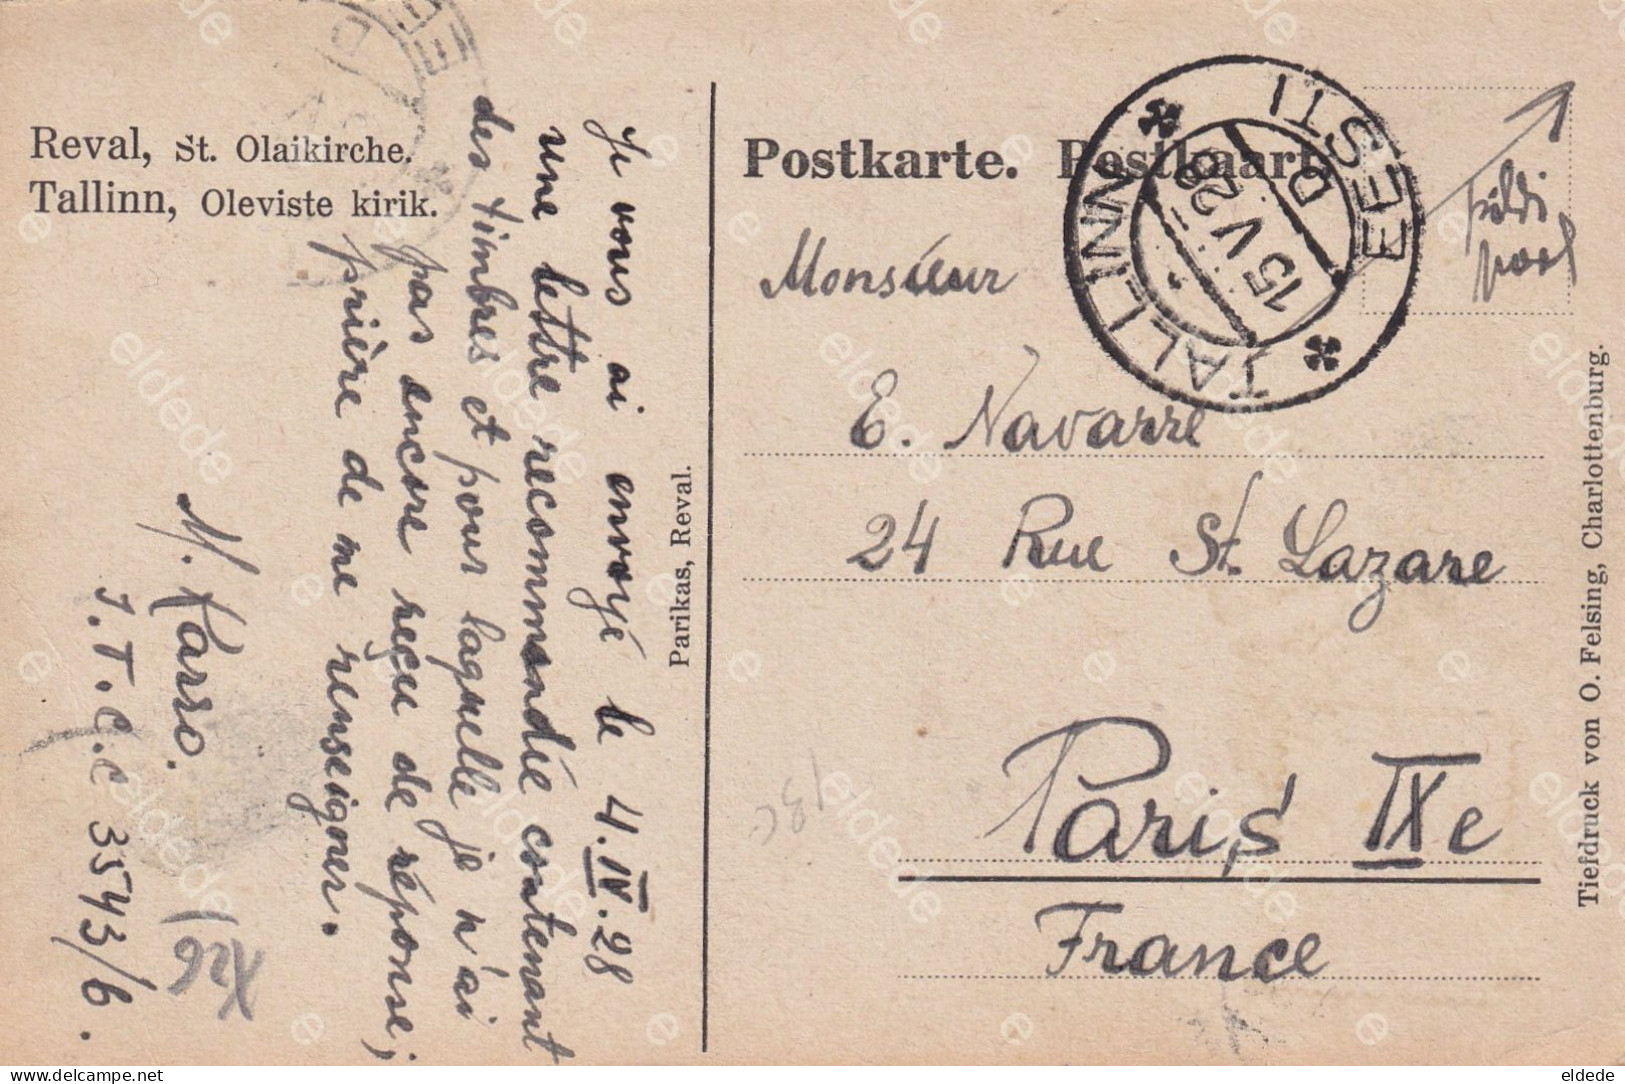 Reval, St. Olaikirche.
Tallinn, Oleviste kirik.
Je vous ai envoyé le 4.IV.28
une lettre recommandée contenant
des timbres et pour laquelle je n'ai
pas encore reçu de réponse;
prière de me renseigner.
M. Karro.
I.T.C.C 3543/6.
Parikas, Reval.
Postkarte. Postkaart.
EESTI
TALLINN
D
15 V 28
pildi
pool
Monsieur
E. Navarre
24 Rue St. Lazare
Paris, IXe
France
Tiefdruck von O. Felsing, Charlottenburg.
eldede